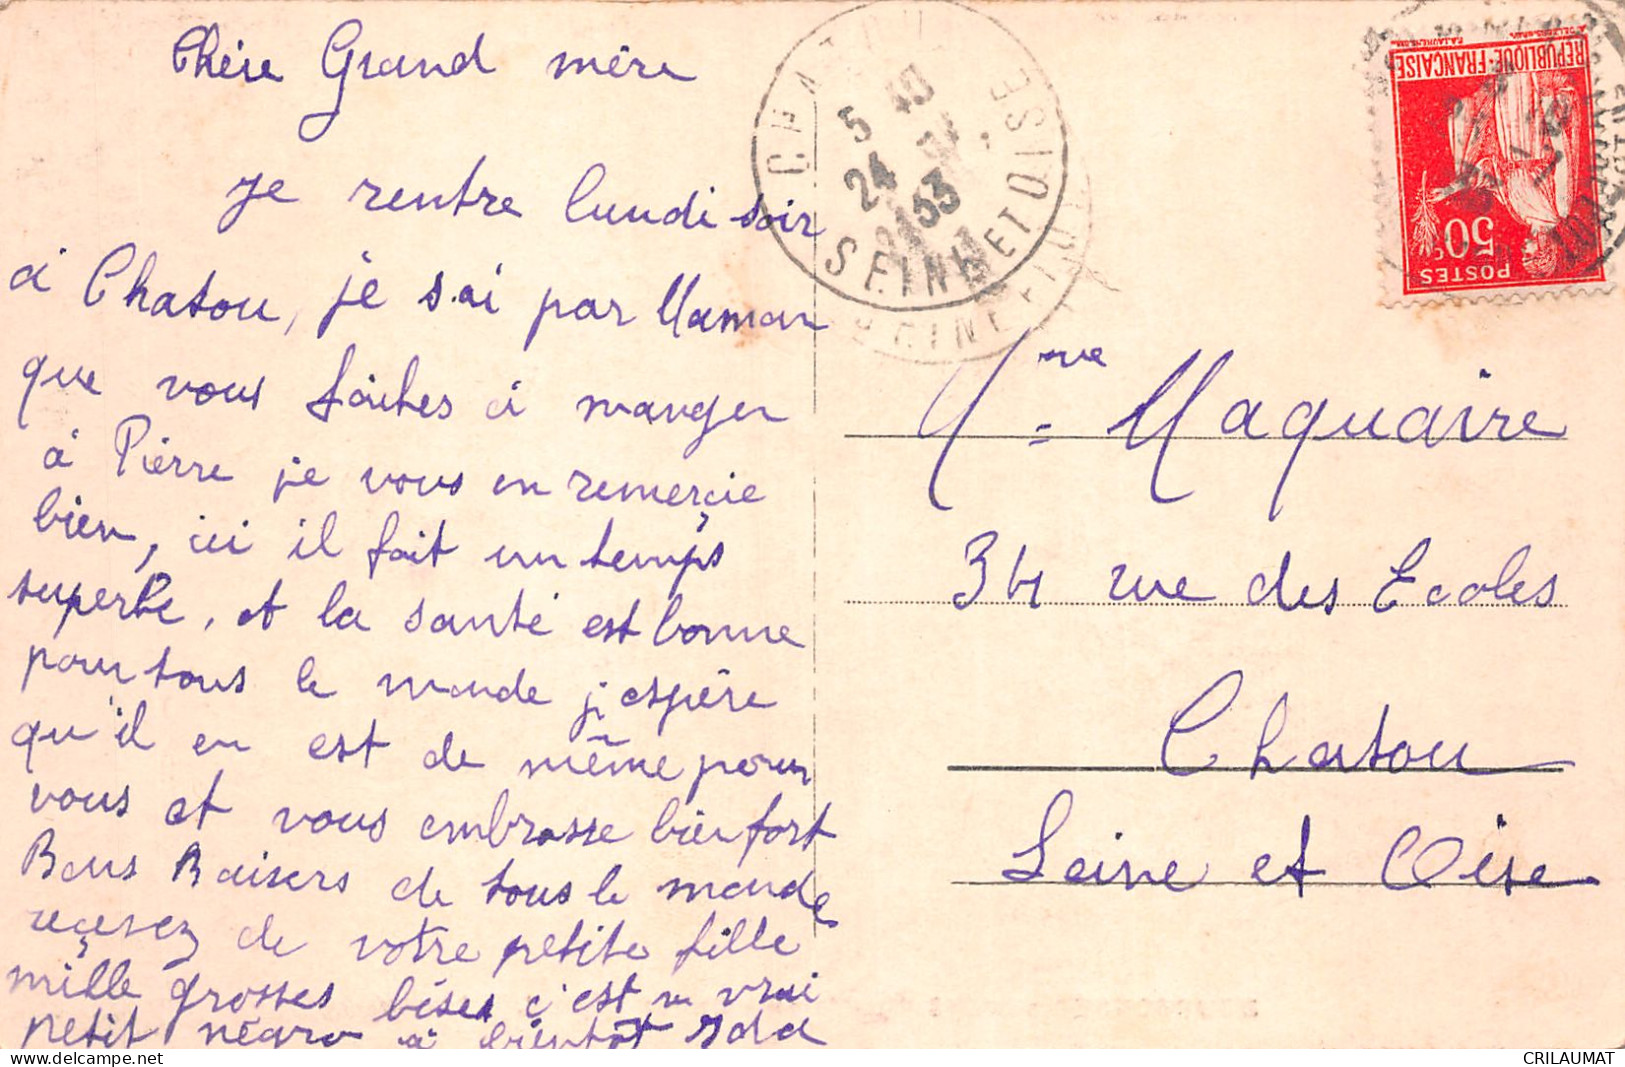 Chère Grand mère
je rentre lundi soir
à Chatou, je sai par Maman
que vous faites à manger
à Pierre je vous en remerçie
bien, ici il fait un temps
superbe, et la santé est bonne
pour tous le monde j'espère
qu'il en est de même pour
vous et vous embrasse bien fort
Bons Baisers de tous le monde
reçevez de votre petite fille
mille grosses bises c'est un vrai
petit négro à bientôt Ida
CHATOU
5 40
24
33
SEINE ET OISE
REPUBLIQUE·FRANÇAISE
50c
POSTES
Mme Maquaire
34 rue des Ecoles
Chatou
Seine et Oise
delcampe.net
CRILAUMAT